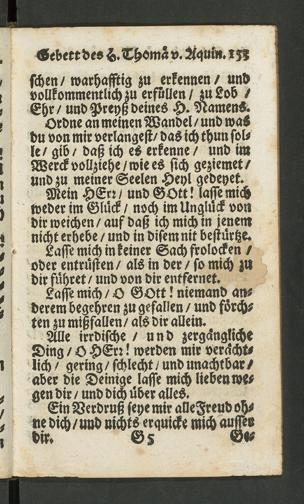 Gebett des H. Thomå v. Aquin. 153
schen / warhafftig zu erkennen / und
vollkommentlich zu erfüllen / zu Lob /
Ehr / und Preyß deines H. Namens.
Ordne an meinen Wandel / und was
du von mir verlangest / das ich thun sol-
le / gib / daß ich es erkenne / und im
Werck vollziehe / wie es sich geziemet /
und zu meiner Seelen Heyl gedeyet.
Mein HErr / und GOtt! lasse mich
weder im Glück / noch im Unglück von
dir weichen / auf daß ich mich in jenem
nicht erhebe / und in disem nit bestürtze.
Lasse mich in keiner Sach frolocken /
oder entrüsten / als in der / so mich zu
dir führet / und von dir entfernet.
Lasse mich / O GOtt! niemand an-
derem begehren zu gefallen / und förch-
ten zu mißfallen / als dir allein.
Alle irrdische / und zergängliche
Ding / O HErr! werden mir verächt-
lich / gering / schlecht / und unachtbar /
aber die Deinige lasse mich lieben we-
gen dir / und dich über alles.
Ein Verdruß seye mir alle Freud oh-
ne dich / und nichts erquicke mich ausser
dir. G 5 Ge-